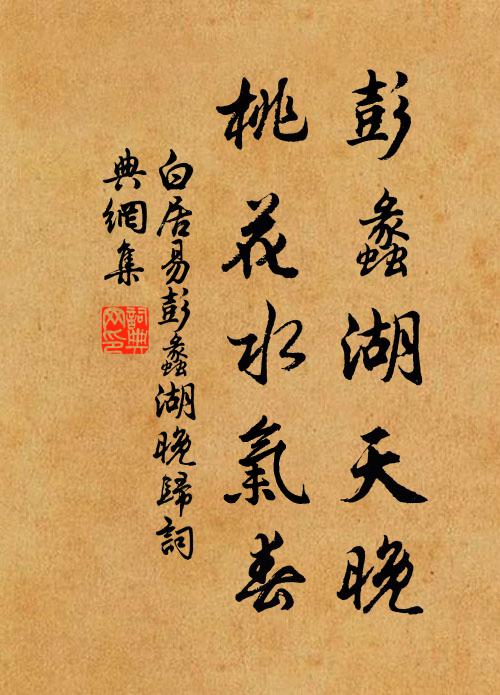 彭蠡湖天晚
桃花水氣春
白居易彭蠡湖晚歸詞
典網集
詞典
网印